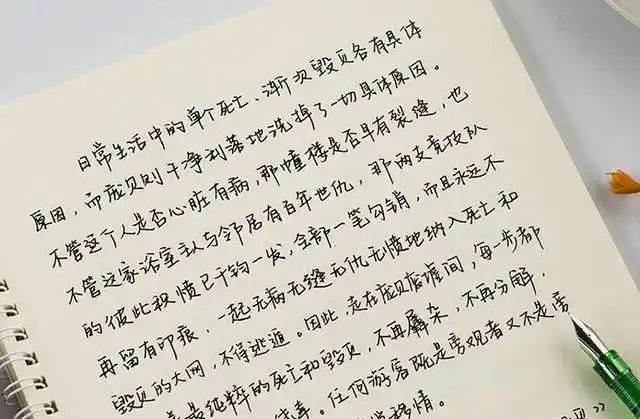 日常生活中的单个死亡、渐次毁灭各有具体
原因，而庞贝则干净利落地洗掉了一切具体原因。
不管这个人是否心脏有病，那幢楼是否早有裂缝，也
不管这家浴室主人与邻居有百年世仇，那两支竞技队
的彼此积愤已千钧一发，全部一笔勾销，而且永远不
再留有印痕，一起无病无缝无仇无愤地纳入死亡和
毁灭的大网，不得逃遁。因此，走在庞贝废墟间，每一步都
是最纯粹的死亡和毁灭，不再羼杂，不再分解，
。任何游客既是旁观者又不是旁
移情。
》